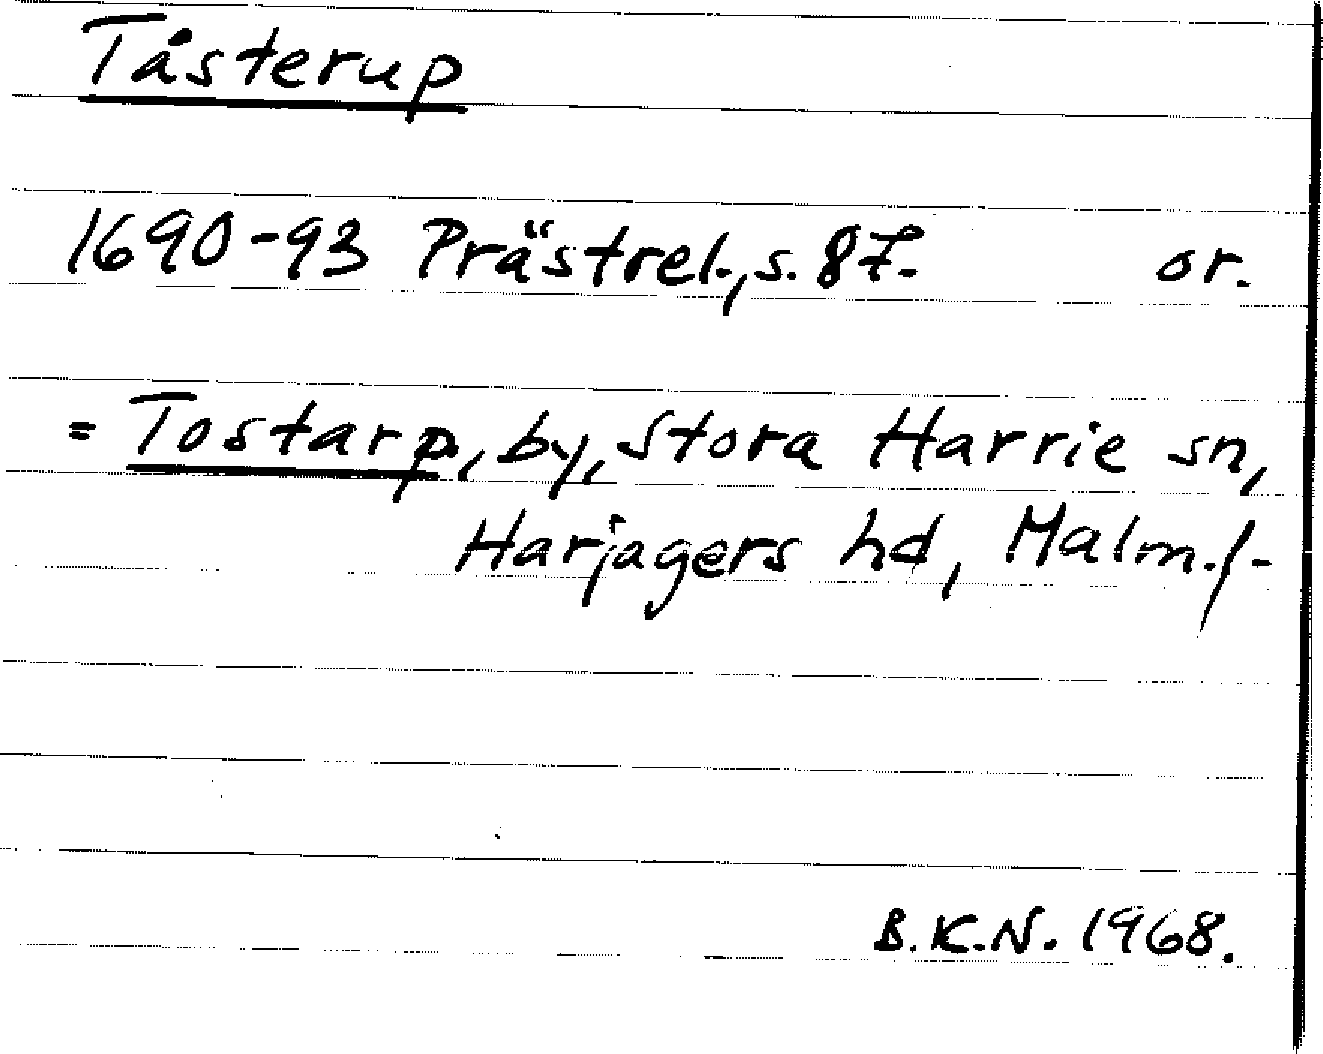 Tåsterup
1690-93 Prästrel., s. 87. or.
= Tostarp, by, Stora Harrie sn,
Harjagers hd, Malm. l-
B.K.N. 1968.